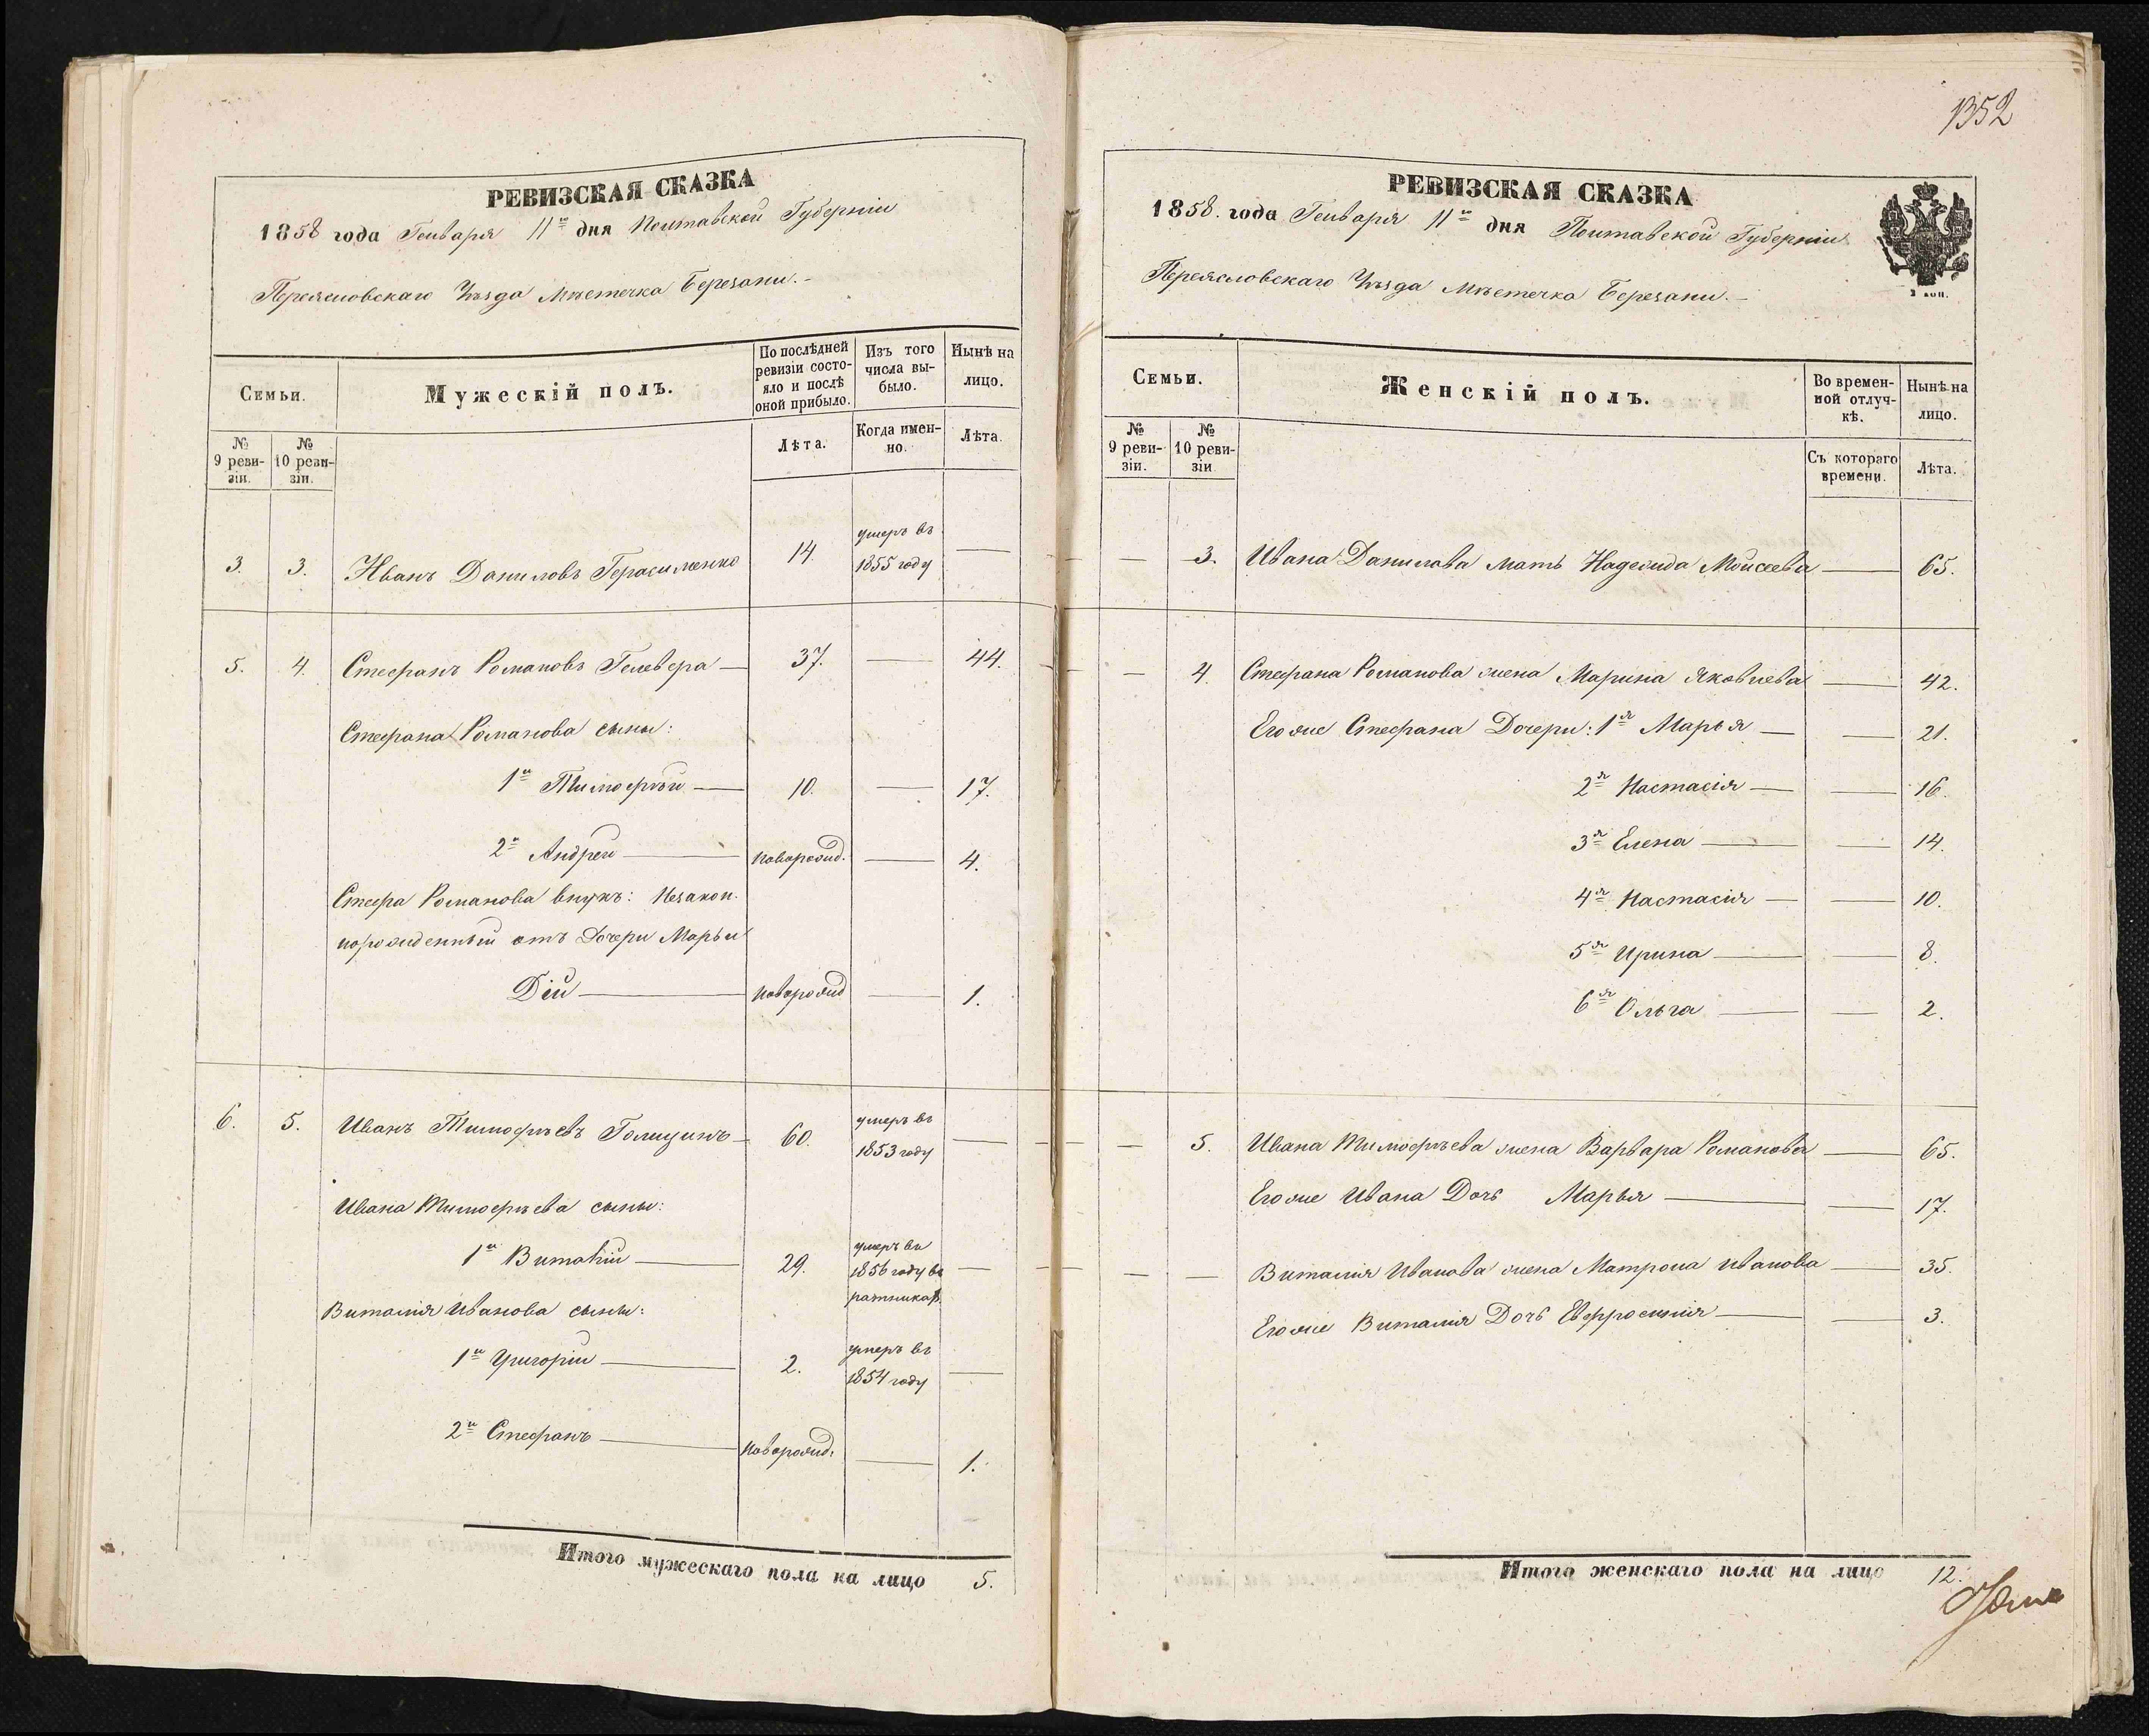 РЕВИЗСКАЯ СКАЗКА
1858 года Генваря 11го дня Полтавской Губерніи
Переясловскаго Уѣзда Мѣстечка Березани.
Семьи.
Мужескій полъ.
По послѣдней ревизіи состояло и послѣ оной прибыло.
Изъ того числа выбыло.
Нынѣ на лицо.
№ 9 ревизіи.
№ 10 ревизіи.
Лѣта.
Когда именно.
Лѣта.
3. 3. Иванъ Даниловъ Герасименко 14 умеръ въ 1855 году —
5. 4. Стефанъ Романовъ Гелевера — 37. — 44.
Стефана Романова сыны:
1й Тимофѣй — 10. — 17.
2й Андрей — новорожд. — 4.
Стефа Романова внукъ: Незакон.
норожденный отъ Дочери Марьи
Дій — новорожд — 1.
6. 5. Иванъ Тимофѣевъ Голицинъ — 60. умеръ въ 1853 году —
Ивана Тимофѣева сыны:
1й Виталій — 29. умеръ въ 1856 году въ ратникахъ —
Виталія Иванова сыны:
1й Григорій — 2. умеръ въ 1854 году —
2й Стефанъ — новорожд. — 1.
Итого мужескаго пола на лицо 5.
1352
РЕВИЗСКАЯ СКАЗКА
1858. года Генваря 11го дня Полтавской Губерніи
Переясловскаго Уѣзда Мѣстечка Березани.
3 коп.
Семьи.
Женскій полъ.
Во временной отлучкѣ.
Нынѣ на лицо.
№ 9 ревизіи.
№ 10 ревизіи.
Съ котораго времени.
Лѣта.
— 3. Ивана Данилова мать Надежда Моисеева — 65.
— 4. Стефана Романова жена Марина Яковлева — 42.
Егоже Стефана Дочери: 1я Марья — — 21.
2я Настасія — — 16.
3я Елена — — 14.
4я Настасія — — 10.
5я Ирина — — 8.
6я Ольга — — 2.
— 5. Ивана Тимофѣева жена Варвара Романова — 65.
Егоже Ивана Дочь Марья — — 17.
— — Виталія Иванова жена Матрона Иванова — 35.
Егоже Виталія Дочь Евфросинія — — 3.
Итого женскаго пола на лицо 12.